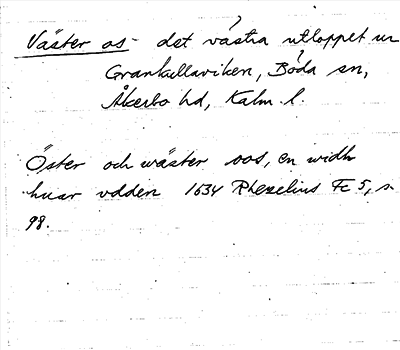 Väster os - det västra utloppet ur
Grankullaviken, Böda sn,
Åkerbo hd, Kalm. l.
Öster och wäster oos, en widh
huar vdden 1634 Rhezelius Fc 5, s.
98.